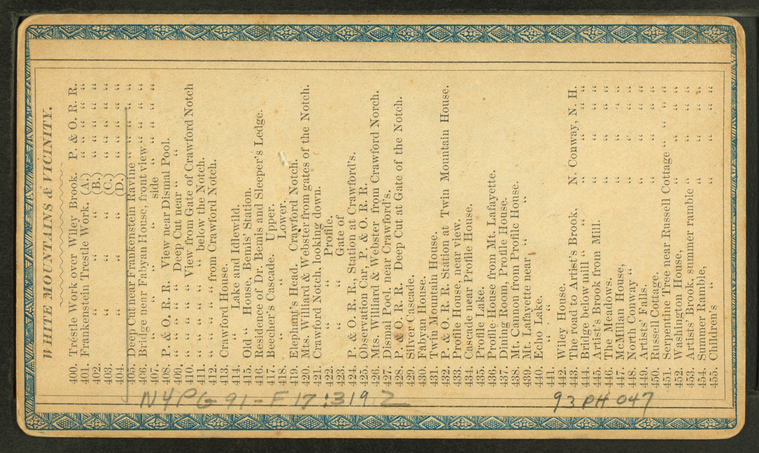 WHITE MOUNTAINS & VICINITY.
400. Trestle Work over Wiley Brook. P. & O. R. R.
401. Frankenstein Trestle Work, (A.) " " " "
402. " " " (B.) " " " "
403. " " " (C.) " " " "
404. " " " (D.) " " " "
405. Deep Cut near Frankenstein Ravine " " " "
406. Bridge near Fabyan House, front view " " " "
407. " " " " side " " " "
408. P. & O. R. R. View near Dismal Pool.
409. " " " " Deep Cut near " "
410. " " " " View from Gate of Crawford Notch
411. " " " " " below the Notch.
412. " " " " " from Crawford Notch.
413. Crawford House.
414. " " Lake and Idlewild.
415. Old " House, Bemis' Station.
416. Residence of Dr. Bemis and Sleeper's Ledge.
417. Beecher's Cascade. Upper.
418. " " Lower.
419. Elephant's Head. Crawford Notch.
420. Mts. Willard & Webster from gates of the Notch.
421. Crawford Notch, looking down.
422. " " Profile.
423. " " Gate of
424. P. & O. R. R., Station at Crawford's.
425. Observation Car, P. & O. R. R.
426. Mts. Willard & Webster from Crawford Notch.
427. Dismal Pool, near Crawford's.
428. P. & O. R. R. Deep Cut at Gate of the Notch.
429. Silver Cascade.
430. Fabyan House.
431. Twin Mountain House.
432. P. & O. R. R. Station at Twin Mountain House.
433. Profile House, near view.
434. Cascade near Profile House.
435. Profile Lake.
436. Profile House from Mt. Lafayette.
437. Dining Room, Profile House.
438. Mt. Cannon from Profile House.
439. Mt. Lafayette near " "
440. Echo Lake.
441. " "
442. Wiley House.
443. The road to Artist's Brook. N. Conway, N. H.
444. Bridge below mill " " " " "
445. Artist's Brook from Mill. " " "
446. The Meadows. " " "
447. McMillan House, " " "
448. North Conway " " " "
449. Artists' Falls. " " "
450. Russell Cottage. " " "
451. Serpentine Tree near Russell Cottage " " "
452. Washington House, " " "
453. Artists' Brook, summer ramble " " "
454. Summer Ramble, " " "
455. Children's " " " "
NYPG 91-F17:319 Z
93PH 047